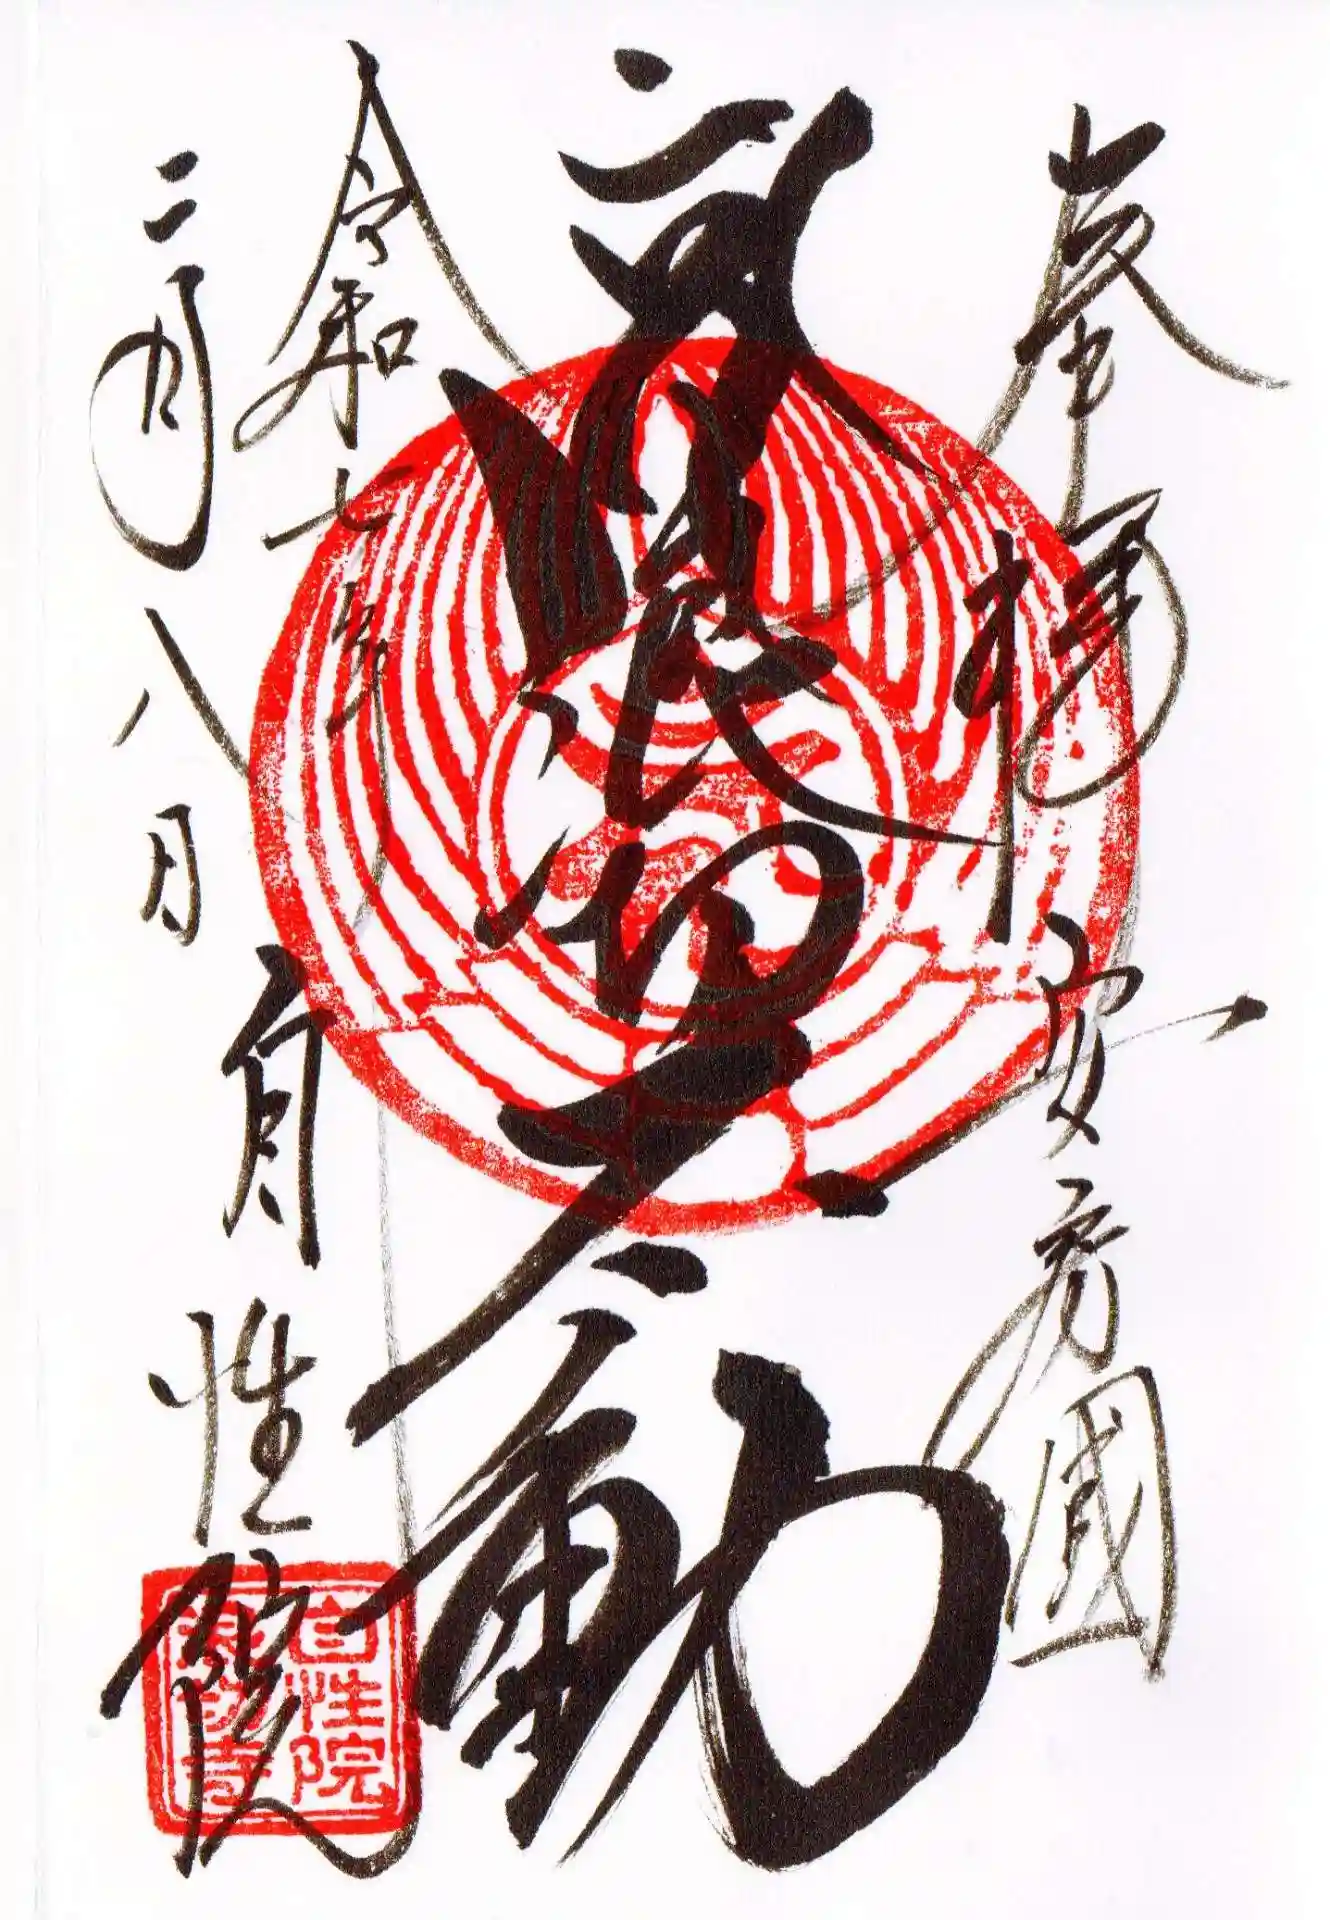 奉拝 安房國
浪切不動
令和七年
二月八日
自性院
自性院